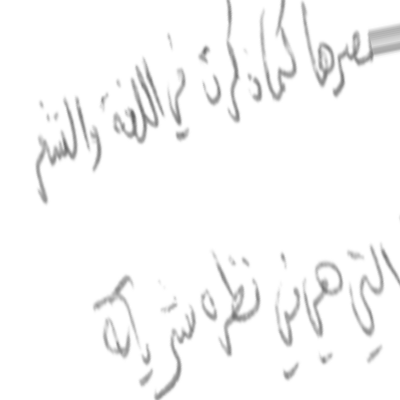 عصرها كما ذكرت في اللغة والشعر
التي هي في نظره شريان